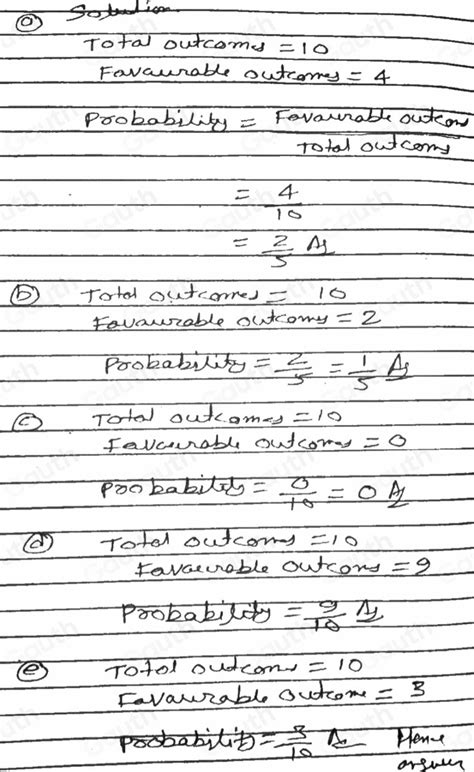 (a) Solution
Total outcomes = 10
Favaurable outcomes = 4
Probability = Favaurable outcom
Total outcoms
= 4
10
= 2 As
5
(b) Total outcomes = 10
Favaurable outcoms = 2
Probability = 2 = 1 As
5 5
(c) Total outcomes = 10
Favaurable outcomes = 0
Probability = 0 = 0 As
10
(d) Total outcoms = 10
Favaurable outcoms = 9
Probability = 9 As
10
(e) Total outcome = 10
Favaurable outcome = 3
Probability = 3 As Hence
10 answer